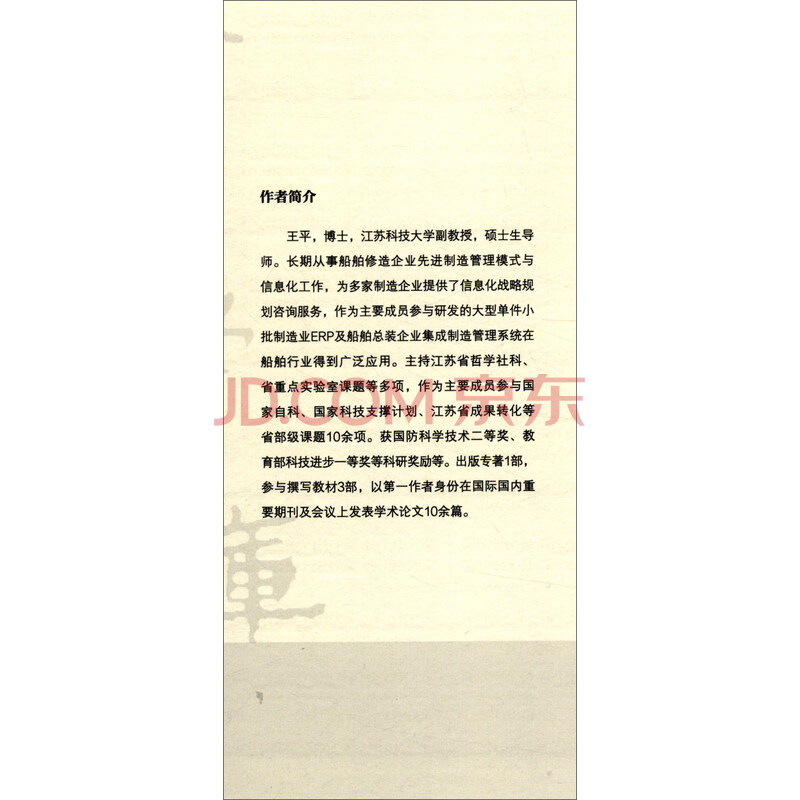 作者简介
王平，博士，江苏科技大学副教授，硕士生导
师。长期从事船舶修造企业先进制造管理模式与
信息化工作，为多家制造企业提供了信息化战略规
划咨询服务，作为主要成员参与研发的大型单件小
批制造业ERP及船舶总装企业集成制造管理系统在
船舶行业得到广泛应用。主持江苏省哲学社科、
省重点实验室课题等多项，作为主要成员参与国
家自科、国家科技支撑计划、江苏省成果转化等
省部级课题10余项。获国防科学技术二等奖、教
育部科技进步一等奖等科研奖励等。出版专著1部，
参与撰写教材3部，以第一作者身份在国际国内重
要期刊及会议上发表学术论文10余篇。
JD.COM 京东
庫